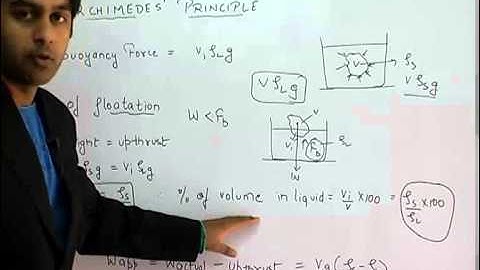 ARCHIMEDES' PRINCIPLE
buoyancy Force = Vi ρL g
V
ρs
V ρs g
V ρL g
of floatation
W < Fb
V
Vi
Fb
ρL
W
weight = upthrust
ρs g = Vi ρL g
ρs
∴ % of volume in liquid = Vi/V × 100 = ρs/ρL × 100
Wapp = Wactual − upthrust = Vg(ρs − ρL)